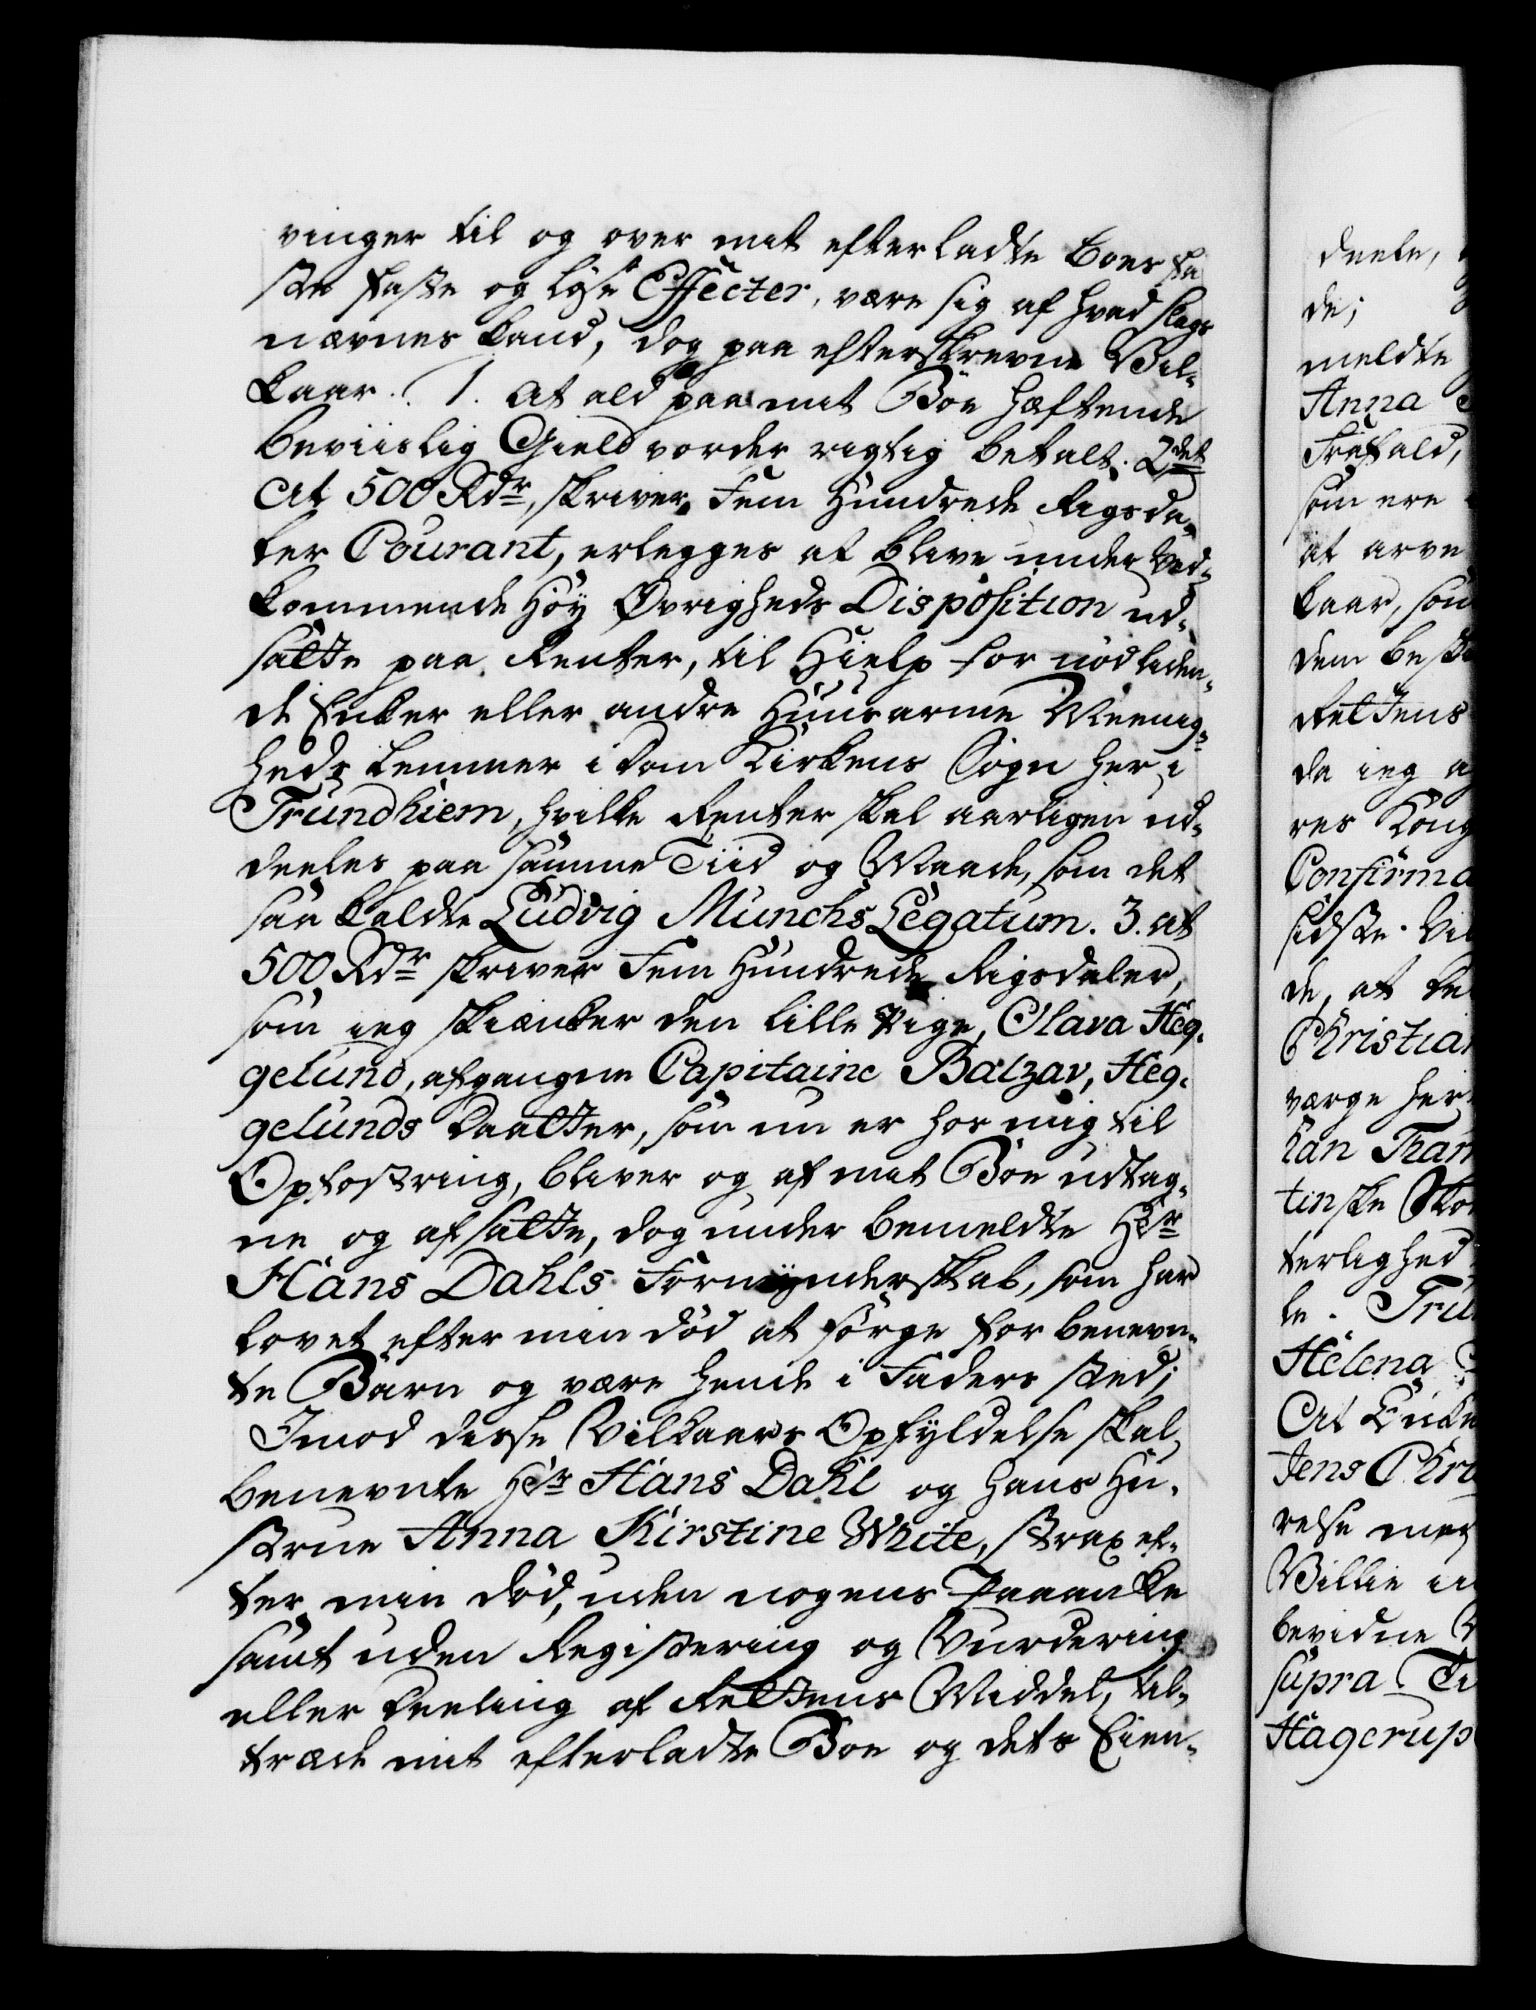 vinger til og over mit efterladte Boes fa
ste faste og løse Effecter, være sig af hvad slags
nævnes kand, dog paa efterskrevne Vil-
kaar. 1. at ald paa mit Boe hæftende
beviislig Gield vorder rigtig betalt. 2det
At 500 Rdr, skriver Fem Hundrede Rigsda-
ler Courant, erlegges at blive under Ved-
kommende Høy Øvrigheds Disposition ud-
satte paa Renter, til Hielp for nødliden-
de Enker eller andre Huusarme Meenig-
heds Lemmer i Dom Kirkens Sogn her i
Trundhiem, hvilke Renter skal aarligen ud-
deeles paa samme Tiid og Maade, som det
saa kaldte Ludvig Munchs Legatum. 3. at
500 Rdr skriver Fem Hundrede Rigsdaler,
som ieg skiænker den lille Pige, Olava Heg-
gelund, afgangne Capitaine Balzar, Heg-
gelunds Daatter, som nu er hos mig til
Opfostring, bliver og af mit Boe udtag-
ne og afsatte, dog under bemeldte Hr
Hans Dahls Formynderskab, som har
lovet efter min Død at sørge for benevn-
te Barn og være hende i Faders sted;
Imod disse Vilkaars Opfyldelse skal
benevnte Hr Hans Dahl og hans Hu-
strue Anna Kirstine White, strax ef-
ter min Død, uden nogens Paaanke
samt uden Registering og Vurdering
eller Deeling af Rettens Middel, til-
træde mit efterladte Boe og dets Eien-
deele,
de;
meldte
Anna
Frafald,
som ere
at arve
kaar, som
dem best
Rettens
da ieg
res Kong
Confirma
sidste Vil
de, at
Christian
værge her
han Tran
tinske
terlighed
le. Tru
Helena
At
Jens Chri
relse
Villie
bevidne
supra
Hagerup